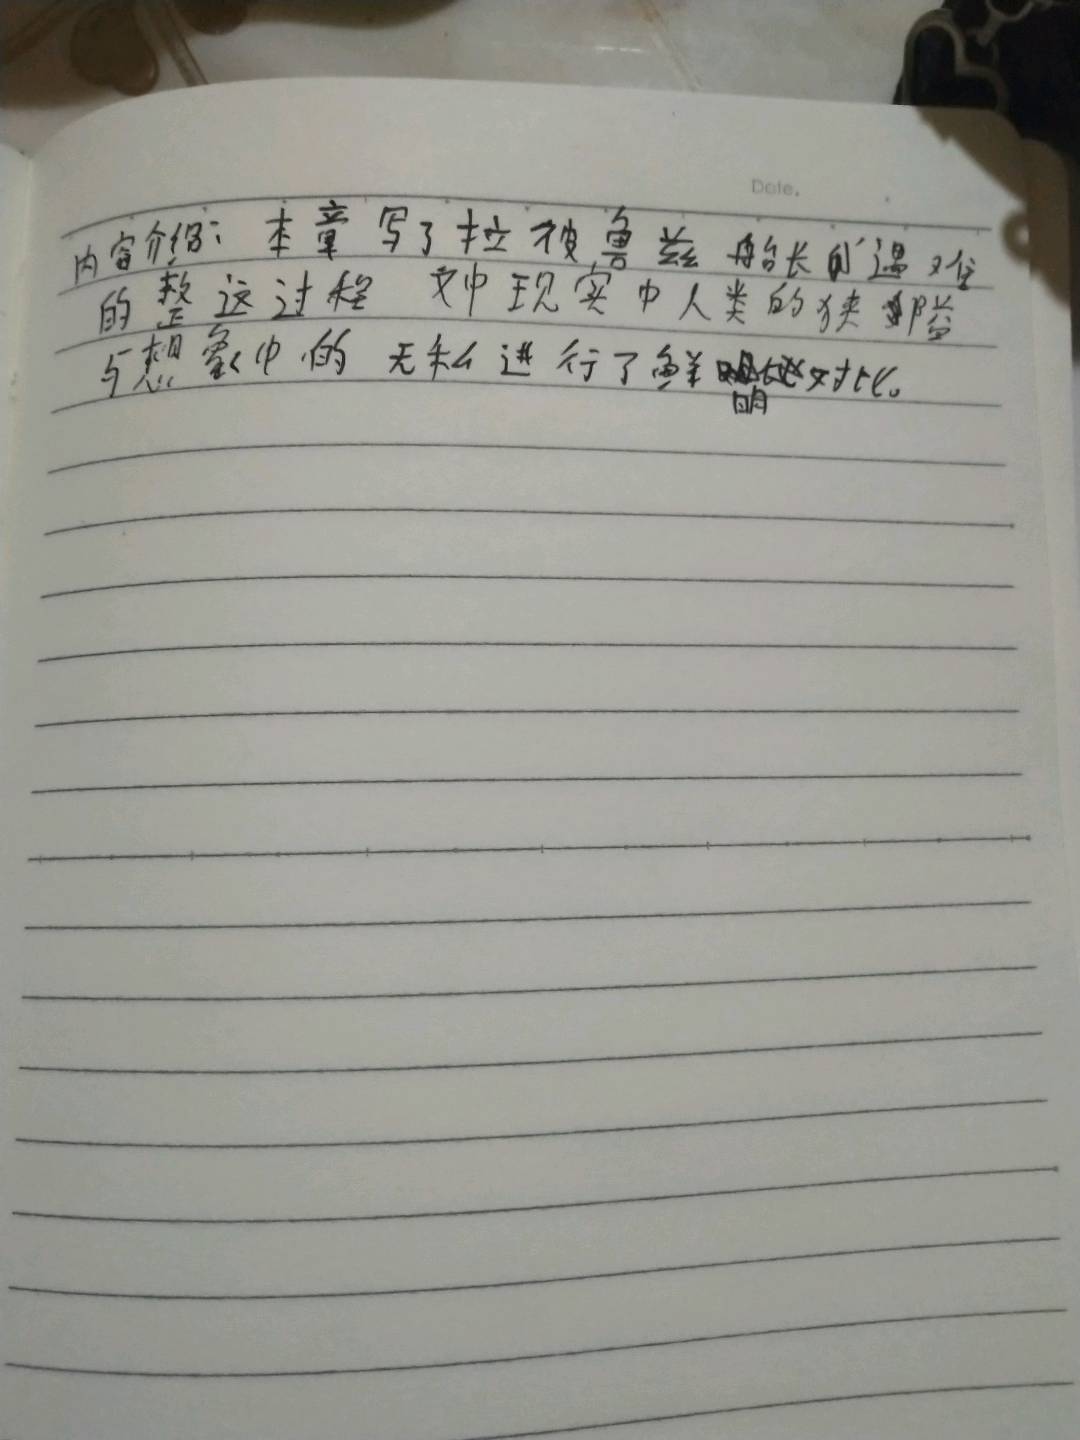 Date.
内容介绍：本章写了拉彼鲁兹船长的遇难
的整这过程 文中现实中人类的狭隘
与想象中的无私进行了鲜明对比。